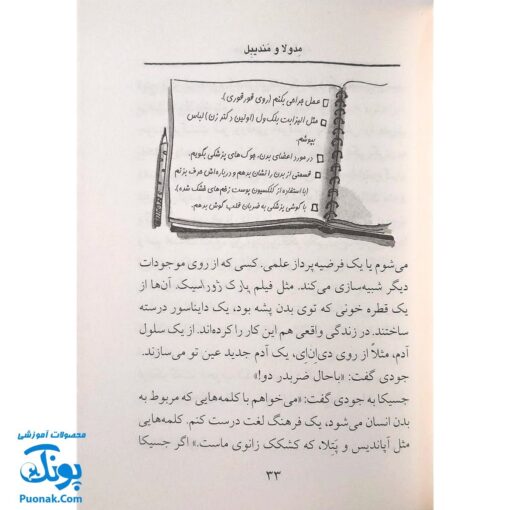 مِدولا و مَندیبِل
عمل جراحی بکنم (روی قورقوری).
مثل الیزابت بلک‌ول (اولین دکتر زن) لباس
بپوشم.
در مورد اعضای بدن، جوک‌های پزشکی بگویم.
قسمتی از بدن را نشان بدهم و درباره‌اش حرف بزنم
(با استفاده از کلکسیون پوست زخم‌های خشک شده).
با گوشی پزشکی به ضربان قلب گوش بدهم.
می‌شوم یا یک فرضیه‌پرداز علمی. کسی که از روی موجودات
دیگر شبیه‌سازی می‌کند. مثل فیلم پارک ژوراسیک. آن‌ها از
یک قطره خونی که توی بدن پشه بود، یک دایناسور درسته
ساختند. در زندگی واقعی هم این کار را کرده‌اند. از یک سلول
آدم، مثلاً از روی دی‌اِن‌اِی، یک آدم جدید عین تو می‌سازند.
جودی گفت: «باحال ضربدر دو!»
جسیکا به جودی گفت: «می‌خواهم با کلمه‌هایی که مربوط به
بدن انسان می‌شود، یک فرهنگ لغت درست کنم. کلمه‌هایی
مثل آپاندیس و پَتِلا، که کشکک زانوی ماست.» اگر جسیکا
۳۳
محصولات آموزشی
پونک
Puonak.Com